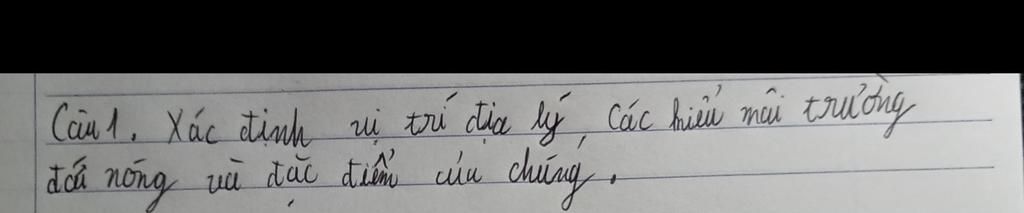 Câu 1. Xác định vị trí địa lý, các kiểu môi trường
đới nóng và đặc điểm của chúng.